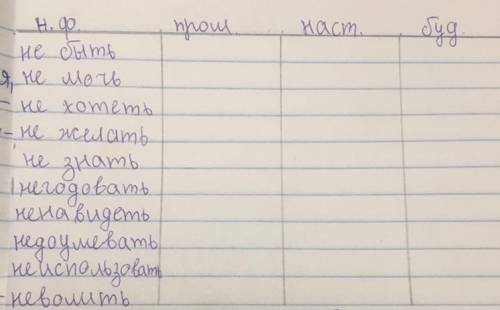 н. ф. прош. наст. буд.
не быть
я, не мочь
не хотеть
не желать
не знать
негодовать
ненавидеть
недоумевать
неиспользовать
неволить